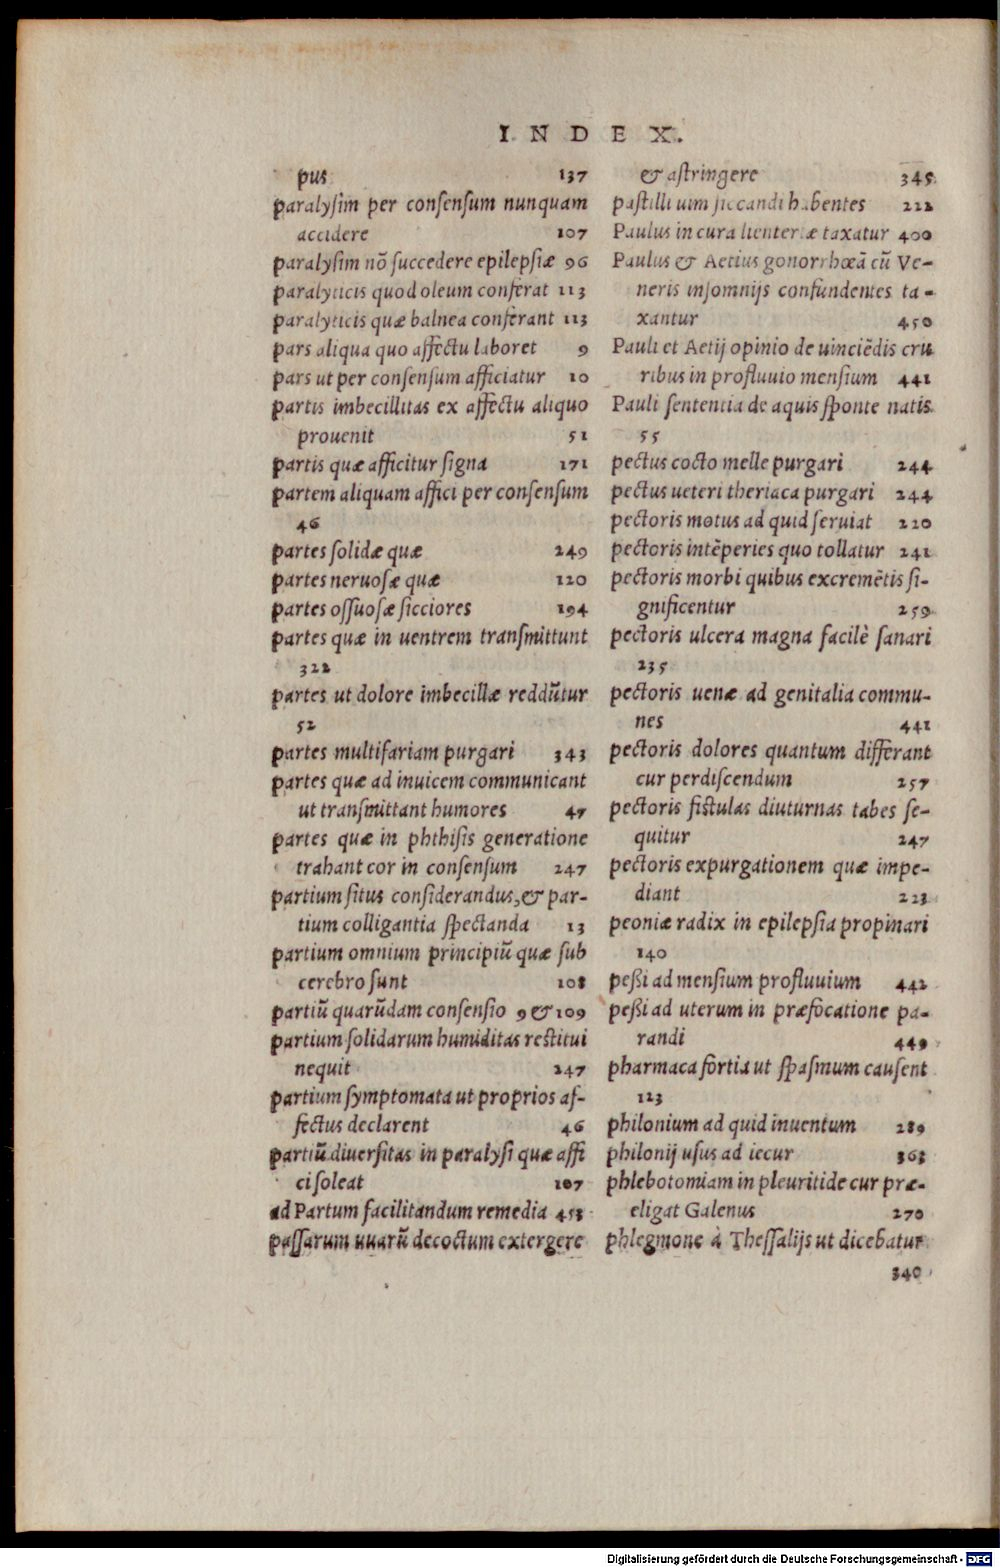 INDEX.
pus 137
paralysim per consensum nunquam
accidere 107
paralysim nõ succedere epilepsiæ 96
paralyticis quod oleum conferat 113
paralyticis quæ balnea conferant 113
pars aliqua quo affectu laboret 9
pars ut per consensum afficiatur 10
partis imbecillitas ex affectu aliquo
prouenit 51
partis quæ afficitur signa 171
partem aliquam affici per consensum
46
partes solidæ quæ 249
partes neruosæ quæ 120
partes ossuosæ sicciores 194
partes quæ in uentrem transmittunt
322
partes ut dolore imbecillæ reddũtur
52
partes multifariam purgari 343
partes quæ ad inuicem communicant
ut transmittant humores 47
partes quæ in phthisis generatione
trahant cor in consensum 247
partium situs considerandus, & par-
tium colligantia spectanda 13
partium omnium principiũ quæ sub
cerebro sunt 108
partiũ quarũdam consensio 9 & 109
partium solidarum humiditas restitui
nequit 247
partium symptomata ut proprios af-
fectus declarent 46
partiũ diuersitas in paralysi quæ affi
ci soleat 107
ad Partum facilitandum remedia 453
passarum uuarũ decoctum extergere
& astringere 345
pastilli uim siccandi habentes 222
Paulus in cura lienteriæ taxatur 400
Paulus & Aetius gonorrhœã cũ Ve-
neris insomnijs confundentes ta-
xantur 450
Pauli et Aetij opinio de uinciẽdis cru
ribus in profluuio mensium 441
Pauli sententia de aquis sponte natis
55
pectus cocto melle purgari 244
pectus ueteri theriaca purgari 244
pectoris motus ad quid seruiat 220
pectoris intẽperies quo tollatur 241
pectoris morbi quibus excremẽtis si-
gnificentur 259
pectoris ulcera magna facilè sanari
235
pectoris uenæ ad genitalia commu-
nes 441
pectoris dolores quantum differant
cur perdiscendum 257
pectoris fistulas diuturnas tabes se-
quitur 247
pectoris expurgationem quæ impe-
diant 223
peoniæ radix in epilepsia propinari
140
peßi ad mensium profluuium 442
peßi ad uterum in præfocatione pa-
randi 449
pharmaca fortia ut spasmum causent
123
philonium ad quid inuentum 289
philonij usus ad iecur 363
phlebotomiam in pleuritide cur præ-
eligat Galenus 270
phlegmone à Thessalijs ut dicebatur
340
Digitalisierung gefördert durch die Deutsche Forschungsgemeinschaft - DFG